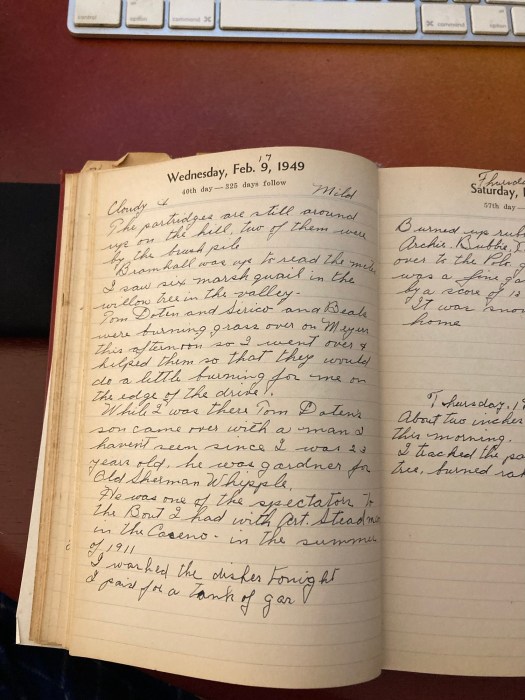 control
option
command
command
option
17
Wednesday, Feb. 9, 1949
40th day—325 days follow
Cloudy & Mild
The partridges are still around
up on the hill, two of them were
by the brush pile
Bramhall was up to read the meter
I saw six marsh quail in the
willow tree in the valley-
Tom Doten and Sirico and Beale
were burning grass over on Meyers
this afternoon so I went over &
helped them so that they would
do a little burning for me on
the edge of the drive.
Whil I was there Tom Doten's
son came over with a man I
havent seen since I was 23
years old, he was gardner for
Old Sherman Whipple.
He was one of the spectators to
the Bout I had with Art. Steadman
in the Caseno - in the summer
of 1911
I washed the dishes tonight
I paid for a tank of gas
Thursda
Saturday,
57th day—
Burned up rub
Archer, Bubbie,
over to the Polo
was a fine ga
by a score of 15
It was snow
home
Thursday, 17
About two inches
this morning.
I tracked the pa
tree, burned